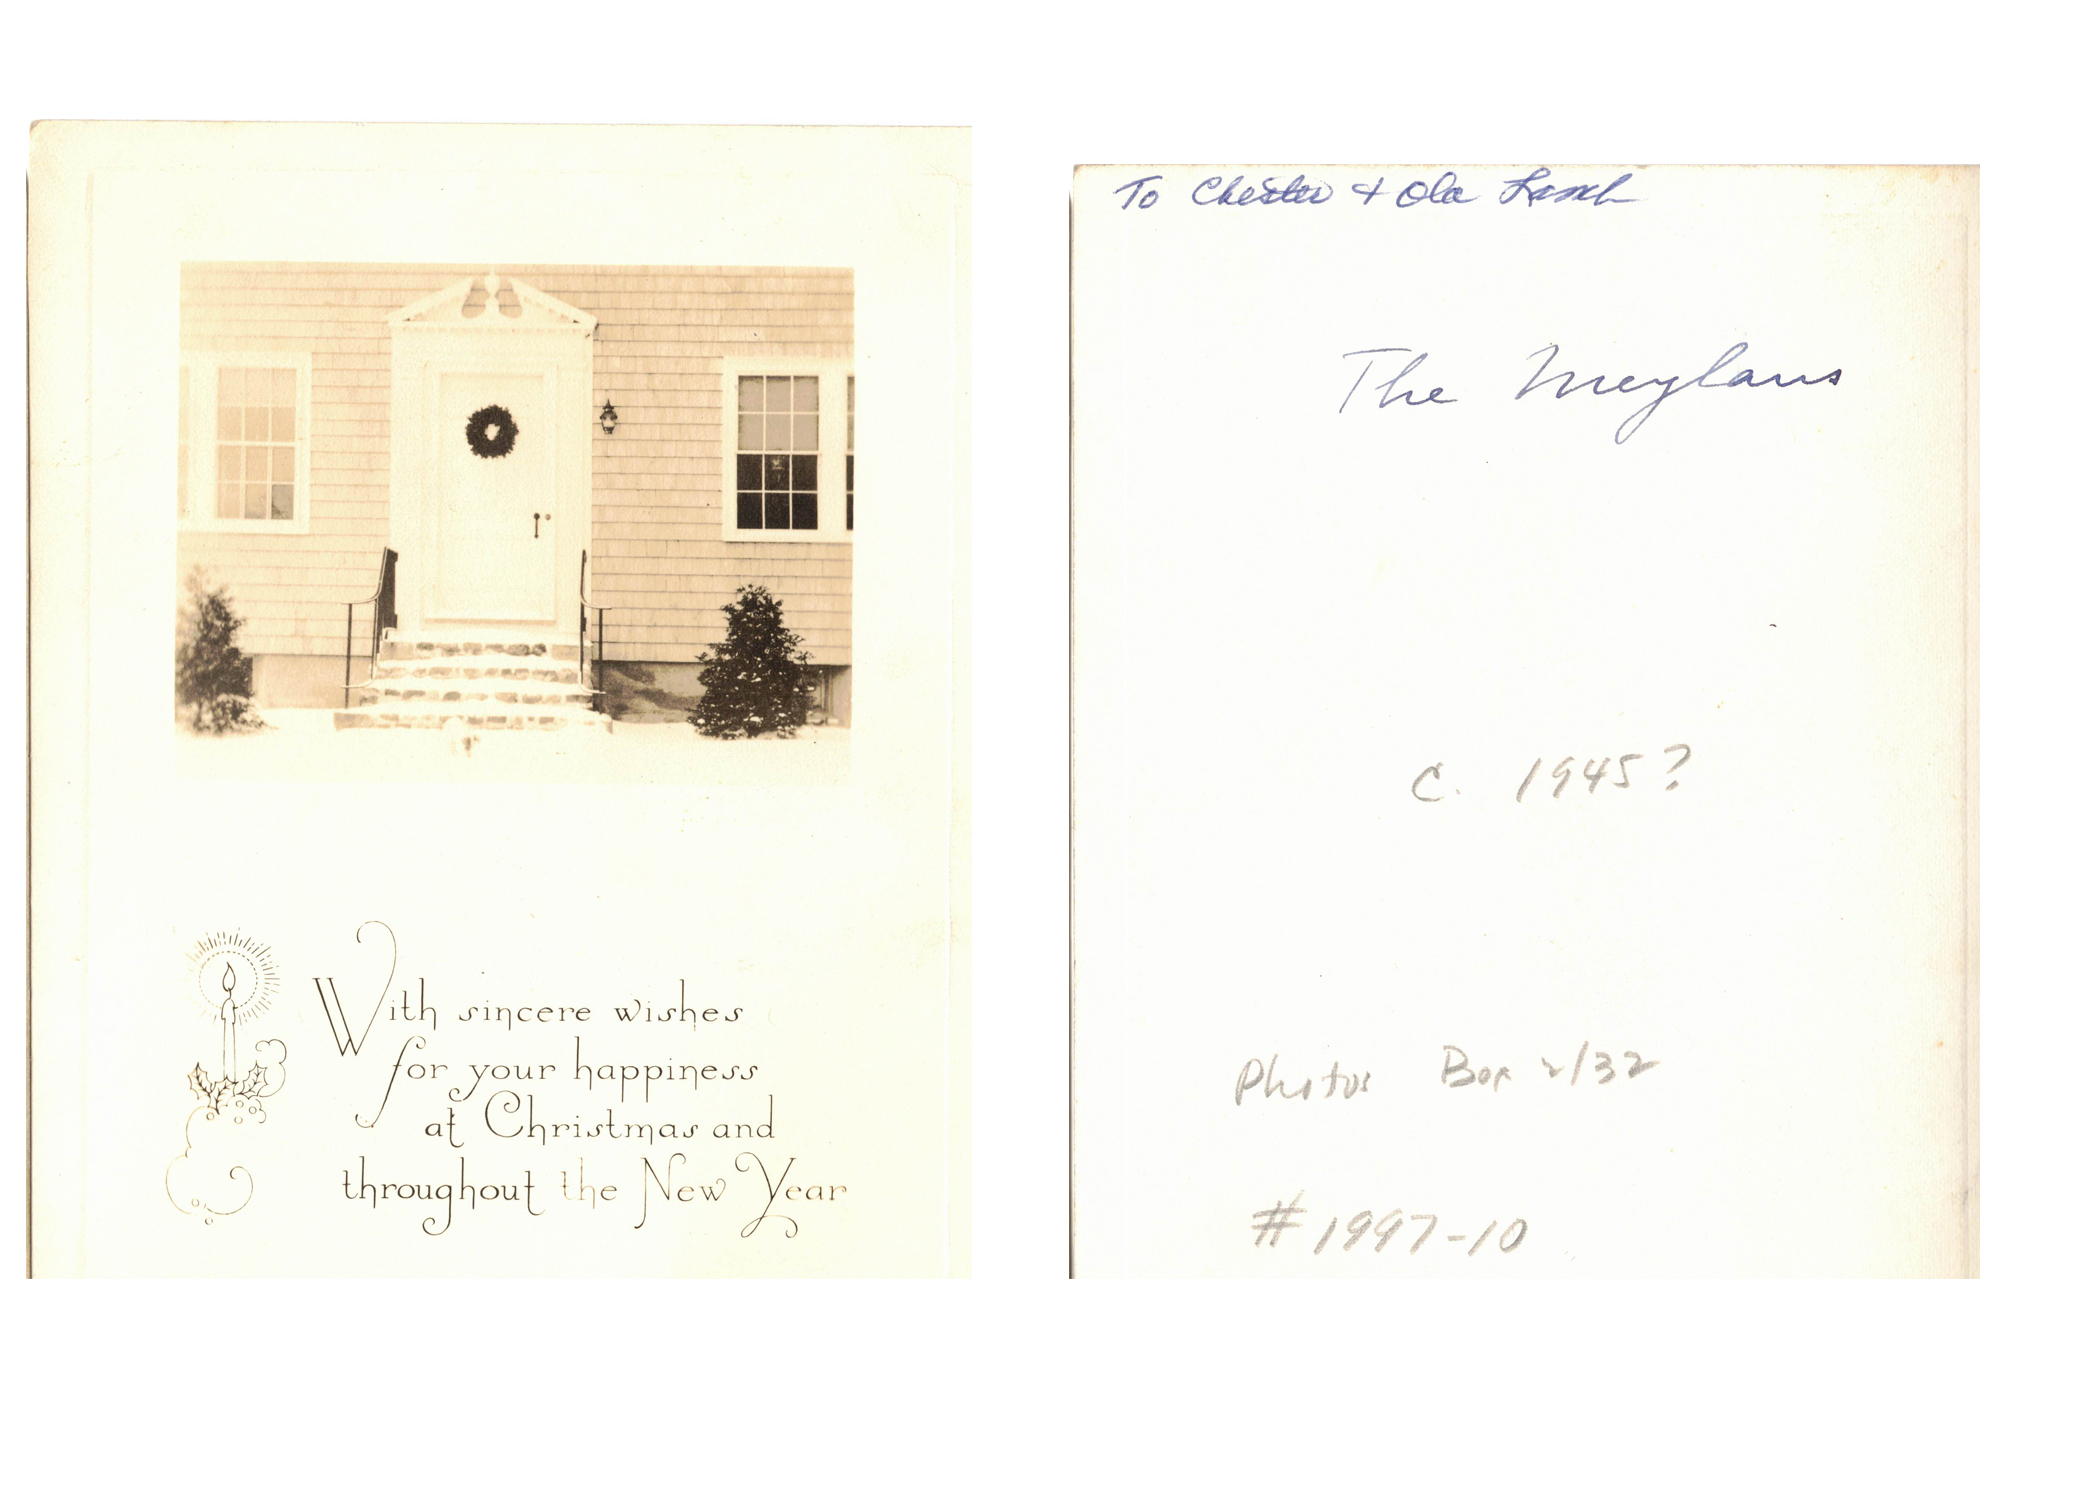 With sincere wishes
for your happiness
at Christmas and
throughout the New Year
To Chester + Ola Lamb
The Meylans
C. 1945?
Photos Box 2/32
#1997-10